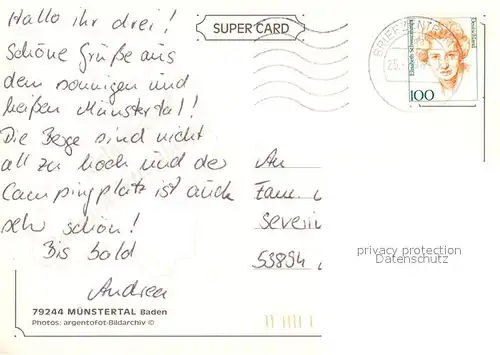 Hallo ihr drei!
Schöne Grüße aus
dem sonnigen und
heißen Münstertal!
Die Berge sind nicht
all zu hoch und der
Campingplatz ist auch
sehr schön!
Bis bald
Andrea
79244 MÜNSTERTAL Baden
Photos: argentofot-Bildarchiv ©
SUPER CARD
BRIEFZENTRUM
25.
Elisabeth Schwarzhaupt
Deutschland
100
An
Fam.
Severin
53894
privacy protection
Datenschutz